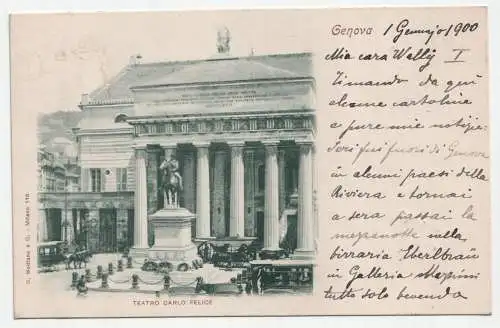 Genova 1 Gennajo 1900
Mia cara Wally I
Ti mando da qui
alcune cartoline
e pure mie notizie.
Ieri fui fuori di Genova
in alcuni paesi della
Riviera e tornai
a sera passai la
mezzanotte nella
birraria Eberlbrau
in Galleria Mazzini
tutto solo bevendo
TEATRO CARLO FELICE
Milano 110